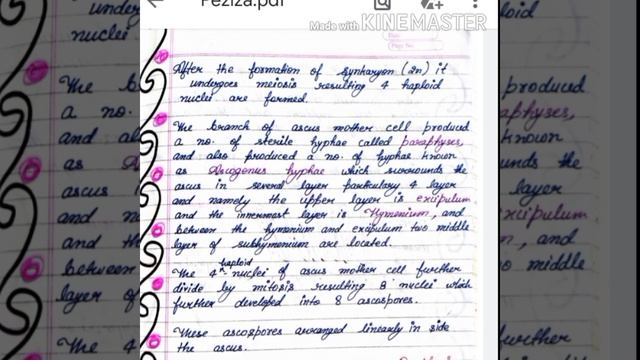 Peziza.pdf
Made with KINEMASTER
After the formation of synkaryon (2n) it
undergoes meiosis resulting 4 haploid
nuclei are formed.
The branch of ascus mother cell produced
a no. of sterile hyphae called paraphyses,
and also produced a no. of hyphae known
as Ascogonus hyphae which surrounds the
ascus in several layer particulary 4 layer
and namely the upper layer is excipulum
and the innermost layer is Hymenium, and
between the hymenium and excipulum two middle
layer of subhymenium are located.
The 4 haploid nuclei of ascus mother cell further
divide by mitosis resulting 8 nuclei which
further developed into 8 ascospores.
These ascospores arranged linearly in side
the ascus.